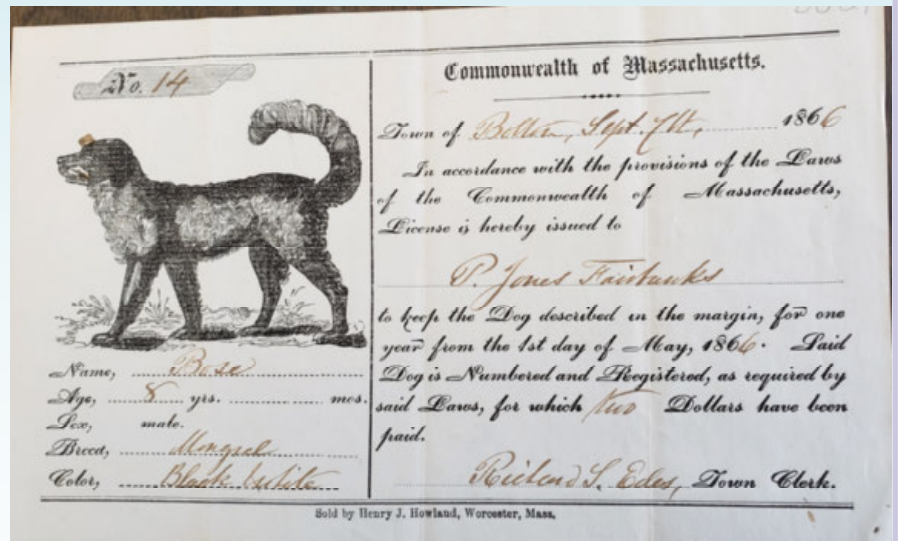 No. 14
Name, Bose
Age, 8 yrs. mos.
Sex, male.
Breed, Mongrel
Color, Black White
Commonwealth of Massachusetts.
Town of Bolton, Sept. 7th, 1866
In accordance with the provisions of the Laws
of the Commonwealth of Massachusetts,
License is hereby issued to
P. Jones Fairbanks
to keep the Dog described in the margin, for one
year from the 1st day of May, 1866. Said
Dog is Numbered and Registered, as required by
said Laws, for which two Dollars have been
paid.
Richard S. Edes, Town Clerk.
Sold by Henry J. Howland, Worcester, Mass.